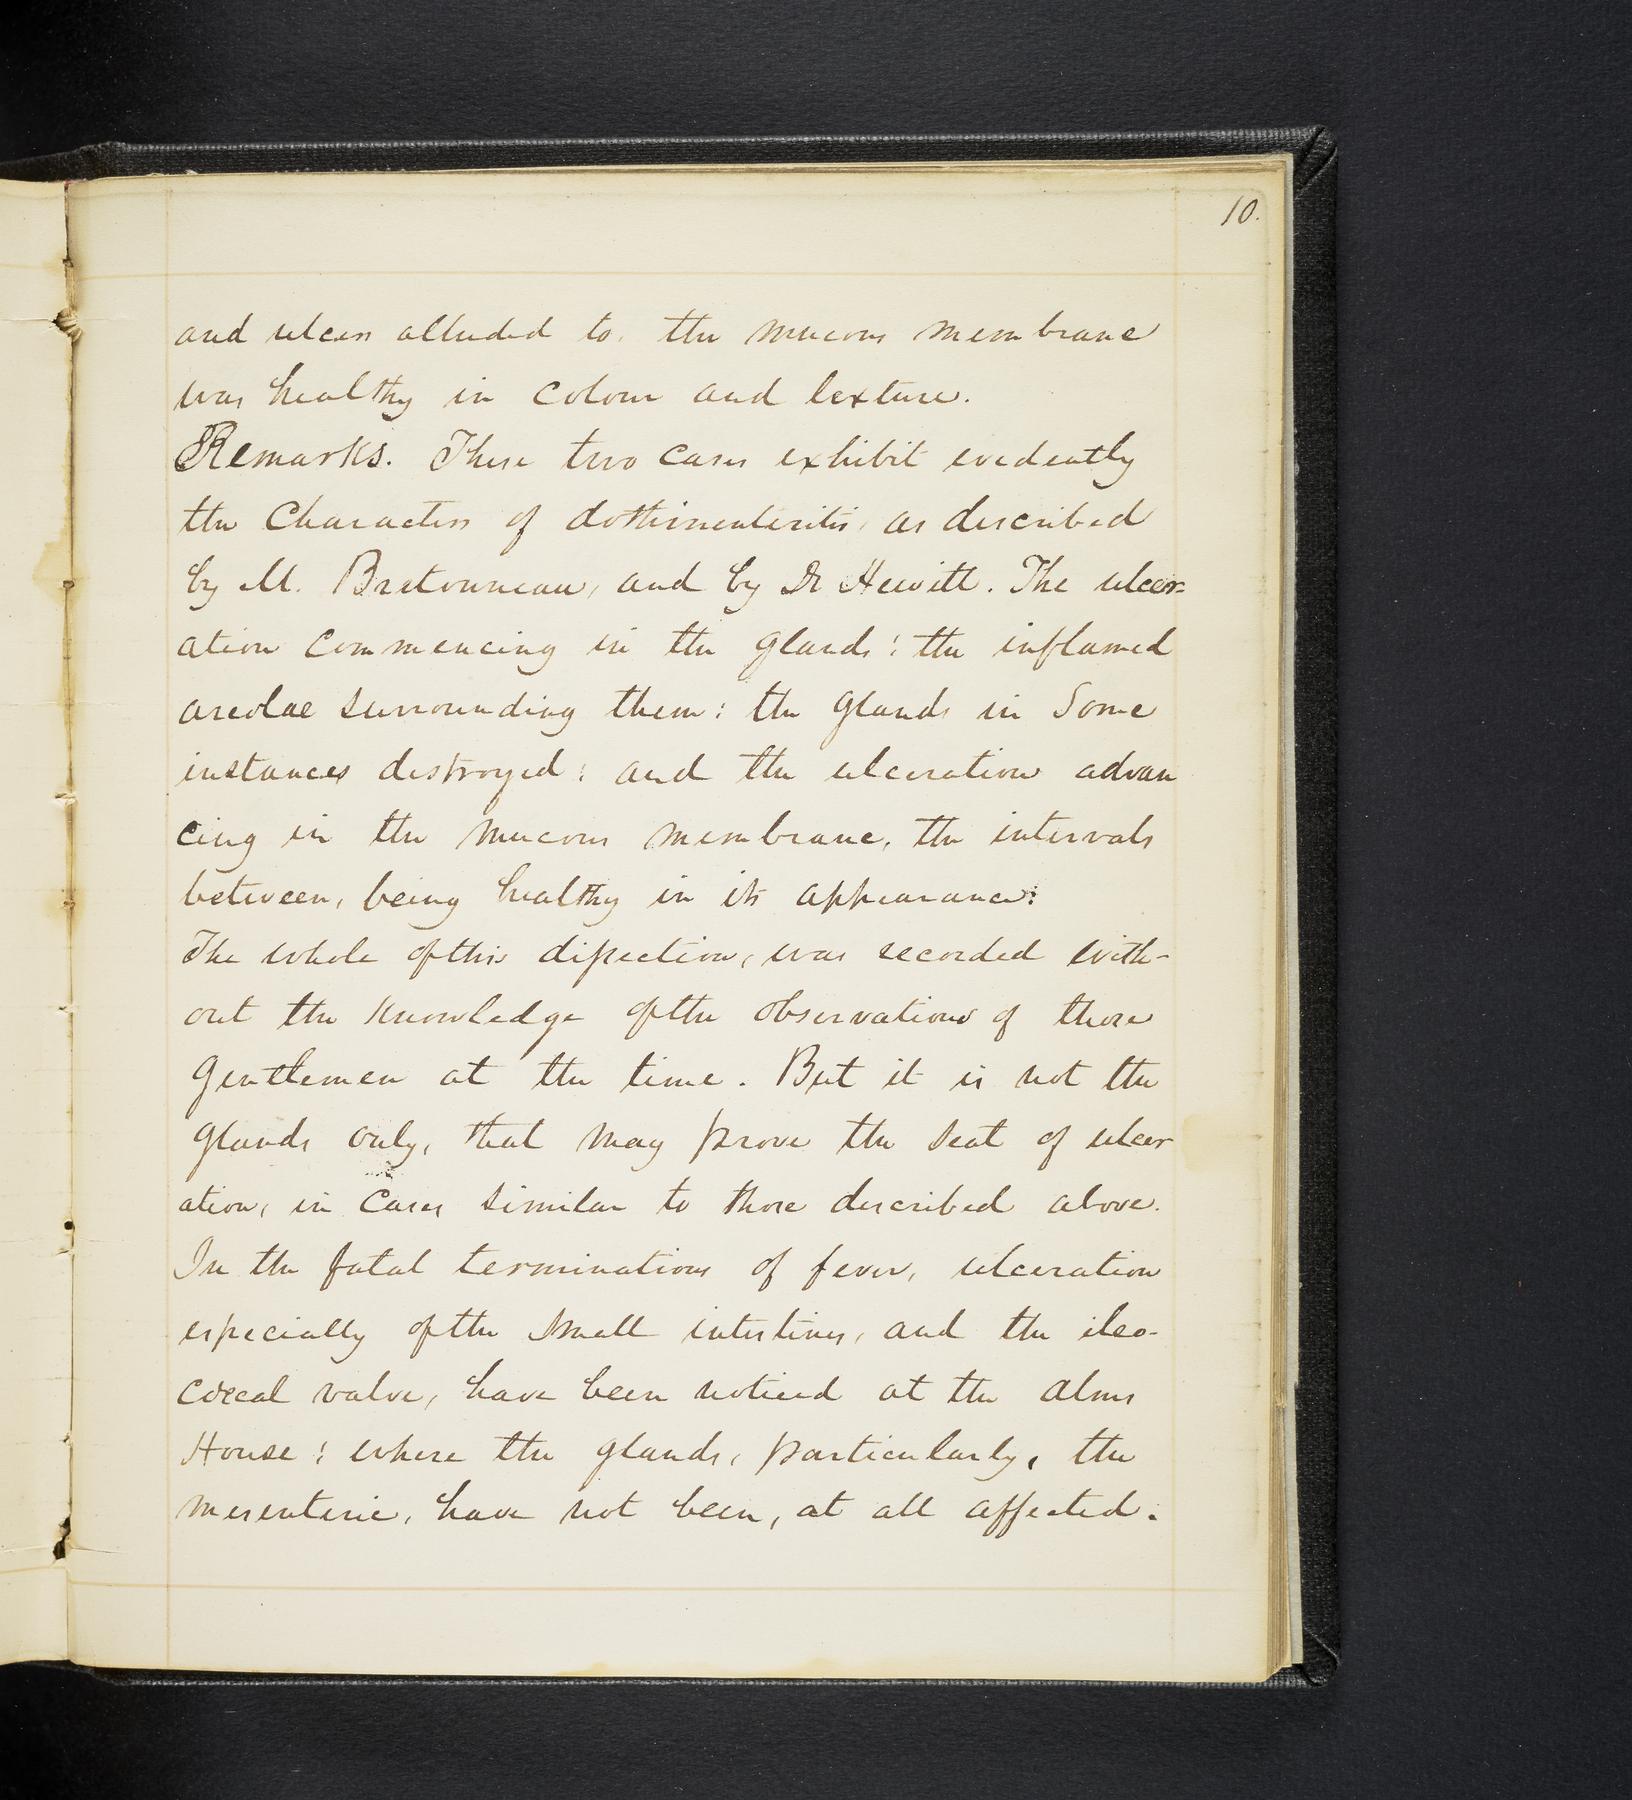 10.
and ulcers alluded to. the mucous membrane
was healthy in colour and texture.
Remarks. These two cases exhibit evedently
the Characters of dothinenteritis, as described
by M. Bretonneau, and by Dr Hewitt. The ulcer-
ation commencing in the glands: the inflamed
areolae surrounding them: the glands in Some
instances destroyed: and the ulceration advan
cing in the mucous membrane, the intervals
between, being healthy in its appearance:
The whole of this dissection, was recorded with-
out the knowledge of the observations of those
Gentlemen at the time. But it is not the
glands only, that may prove the seat of ulcer
ation, in cases similar to those described above.
In the fatal terminations of fever, ulceration
especially of the small intestines, and the ileo-
coecal valve, have been noticed at the Alms
House: where the glands, particularly, the
mesenteric, have not been, at all affected.